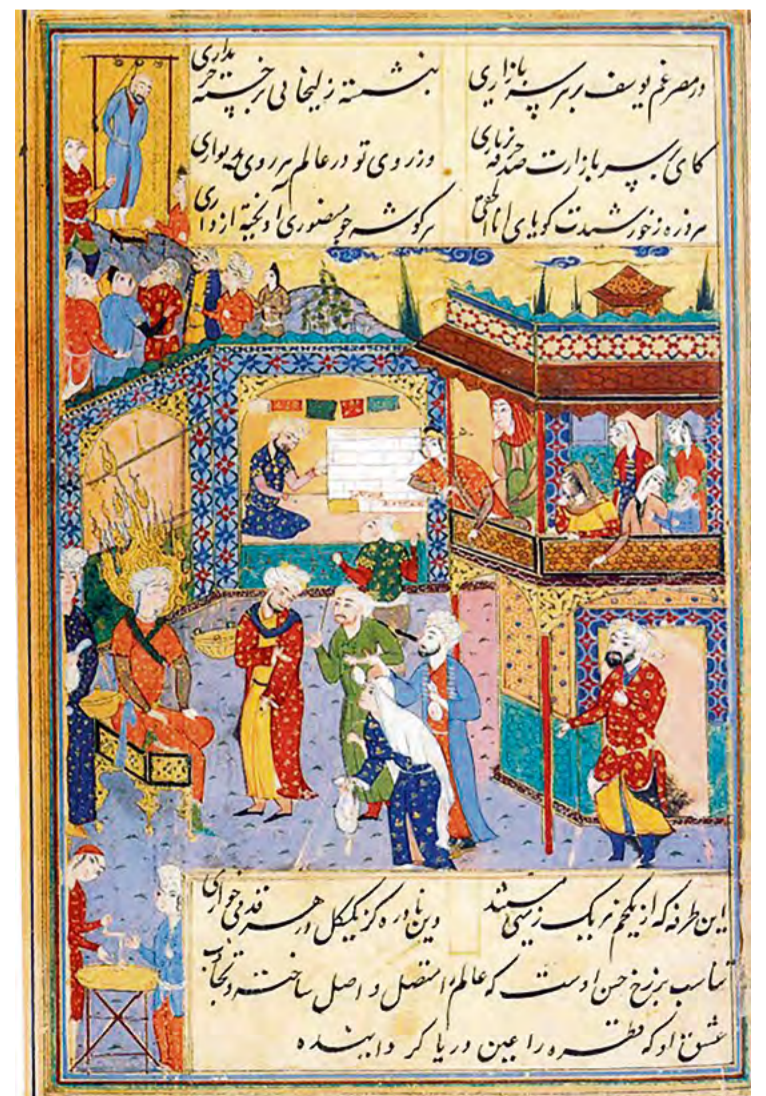 در مصر غم یوسف بر هر سر بازاری بنشسته زلیخائی برخسته خریداری
کای بر سر بازارت صد خرقه بزناری وز روی تو در عالم هر روی بدیواری
هر ذره ز خورشیدت گویای انا الحقی هر گوشه چو منصوری آویخته از داری
این طرفه که از یکخم هر یک ز میی مستند وین نادره کز یک گل در هر قدمی خاری
تناسب برزخ حسن اوست که عالم را متصل و اصل ساخته و تجاذب
عشق او که قطره را عین دریا گرداننده